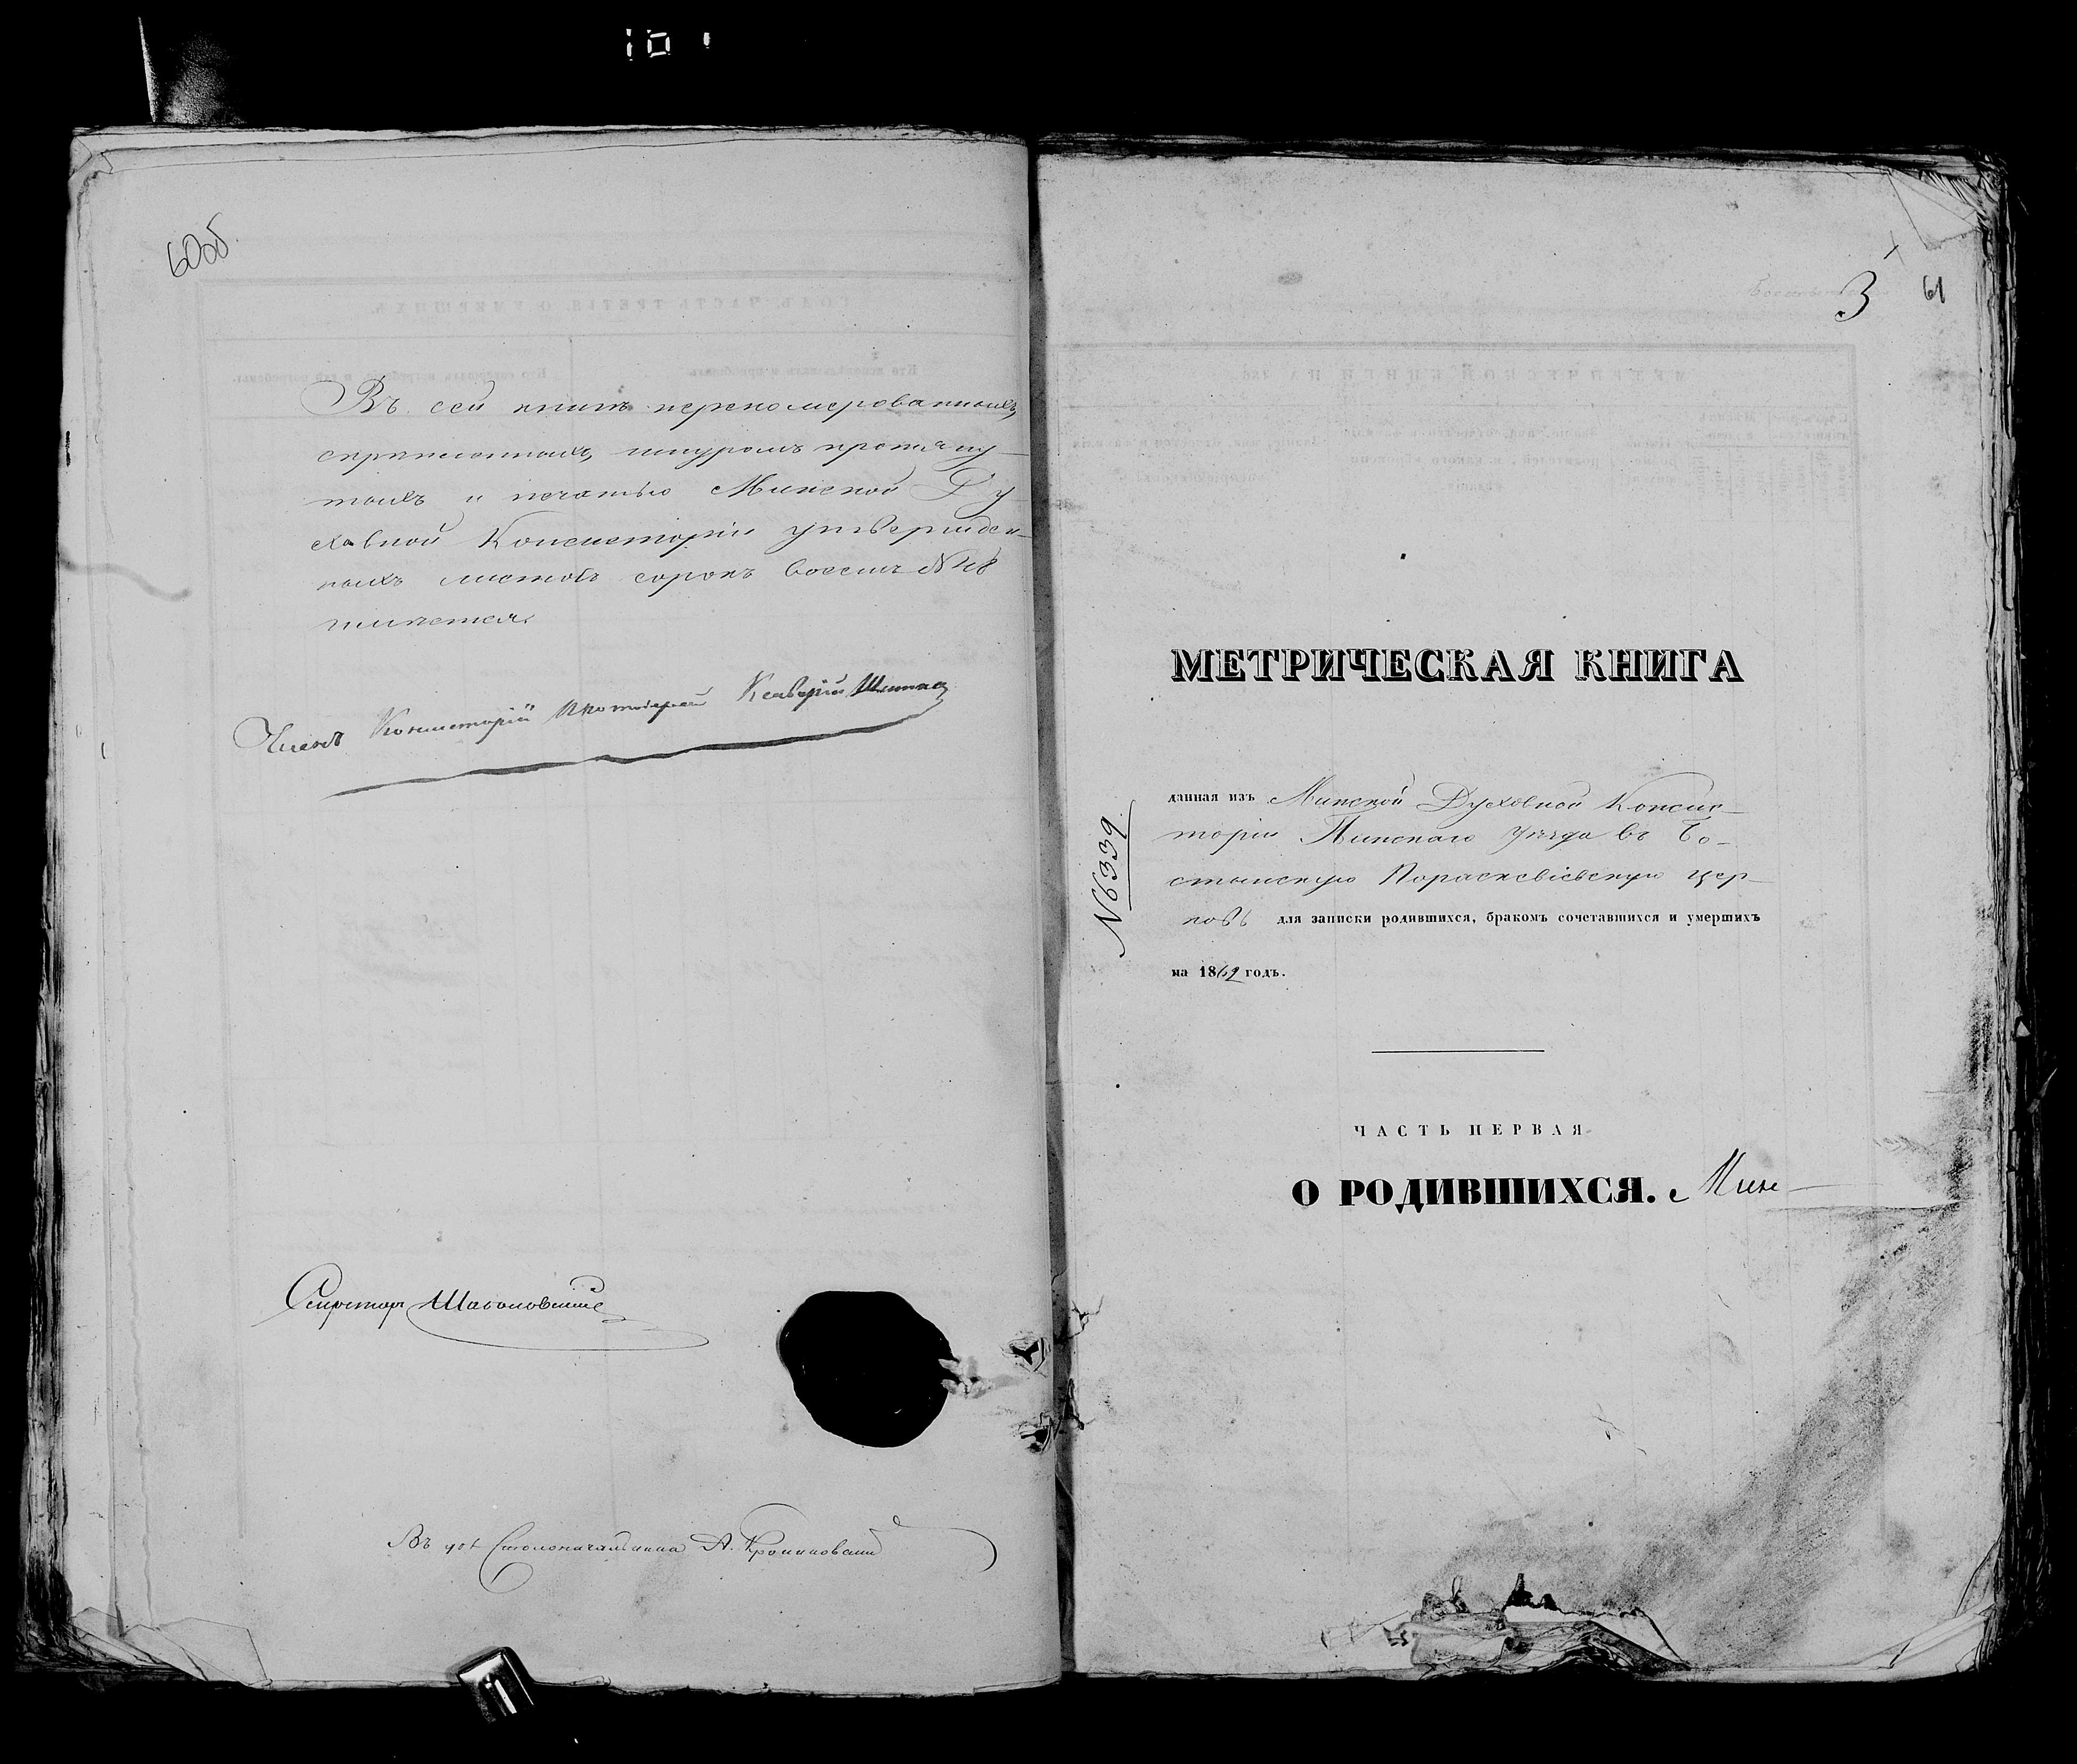 60об
Въ сей книгѣ перенумерованныхъ,
скрѣпленныхъ, шнуромъ протяну-
тыхъ и печатью Минской Ду-
ховной Консисторіи утвержден-
ныхъ листовъ сорокъ восемь № 48
имѣется.
Членъ Консисторіи Протоіерей
Секретарь
Въ Столоначальника А.
3 61
МЕТРИЧЕСКАЯ КНИГА
№ 339
данная изъ Минской Духовной Консис-
торіи Пинскаго уѣзда въ Бо-
стынскую Параскевіевскую цер-
ковь для записки родившихся, бракомъ сочетавшихся и умершихъ
на 1862 годъ.
ЧАСТЬ ПЕРВАЯ
О РОДИВШИХСЯ. Мин-